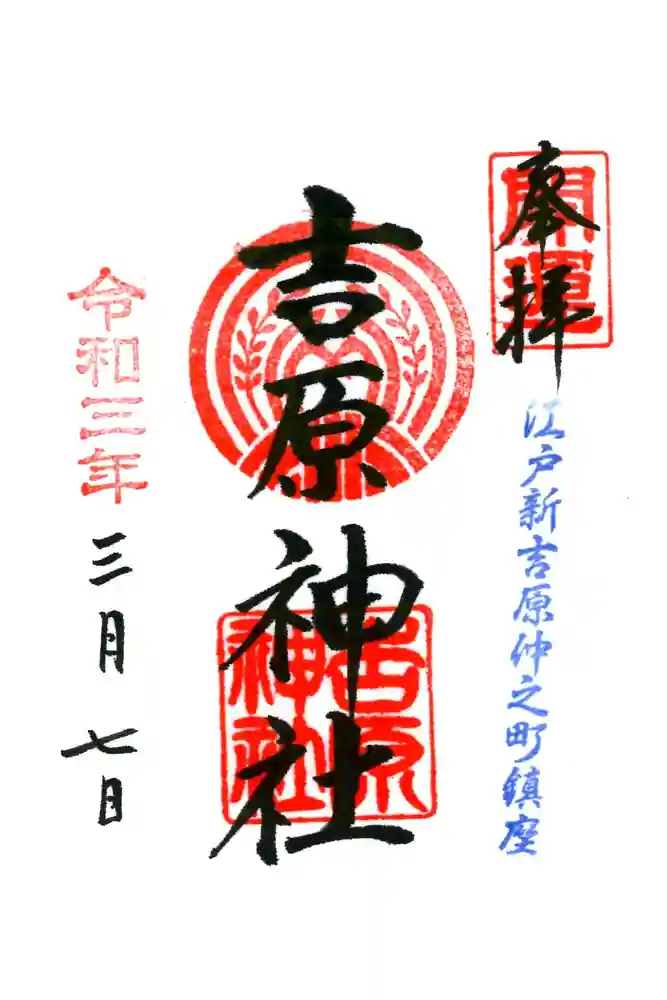 奉拝
開運
江戸新吉原仲之町鎮座
吉原神社
吉原神社
令和三年
三月七日